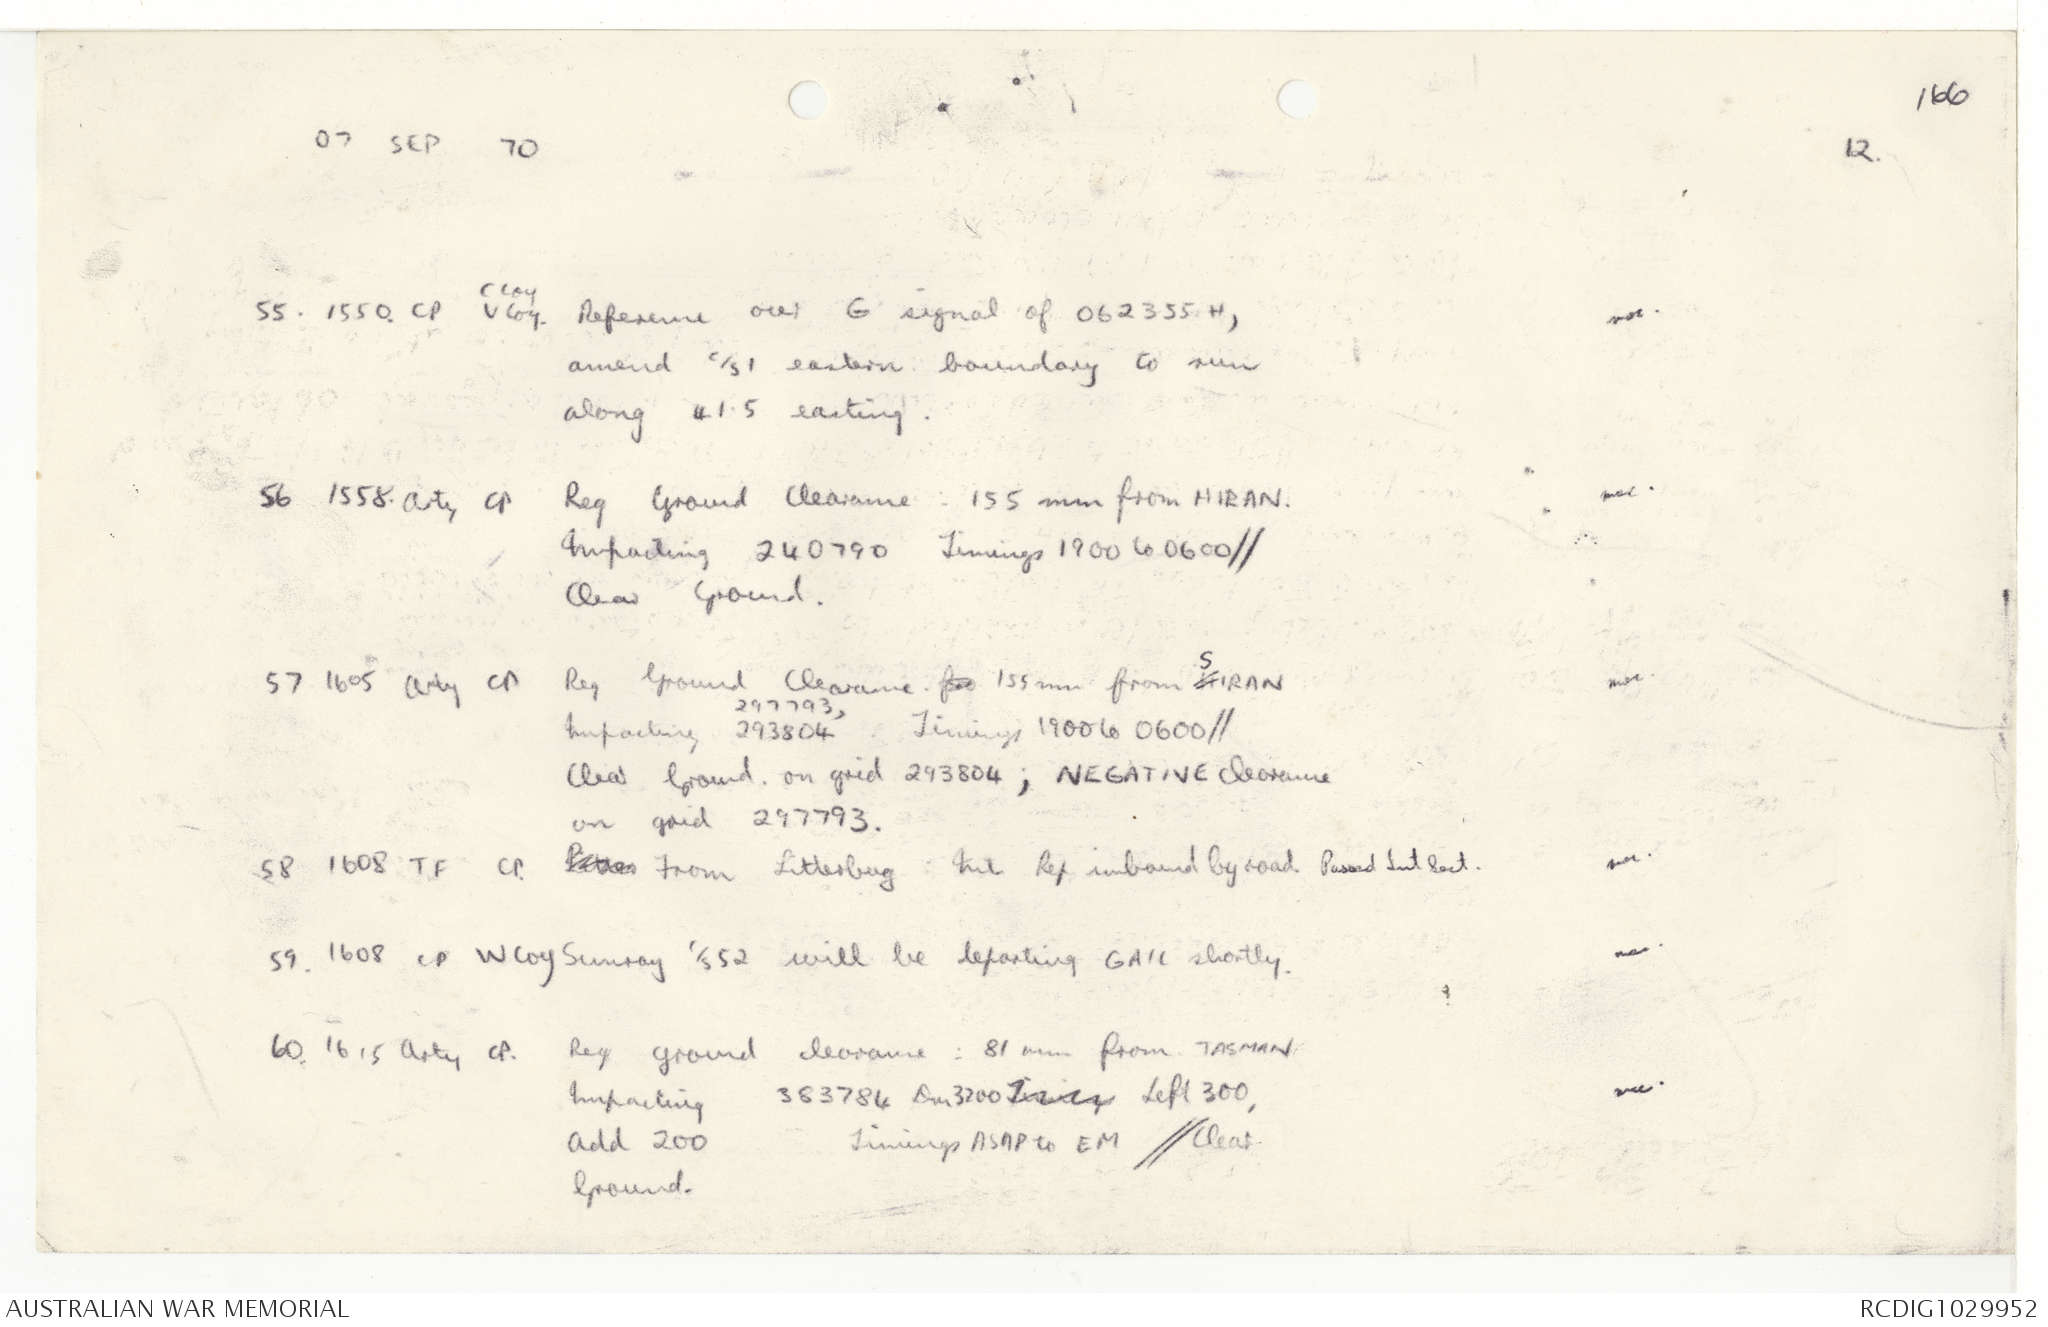 166
07 SEP 70
12.
C Coy
55. 1550. CP V Coy. Reference our G signal of 062355 H,
amend c/s 1 eastern boundary to run
along 41.5 easting.
56 1558. Arty CP Req Ground Clearance : 155 mm from HIRAN.
Impacting 240790 Timings 1900 to 0600//
Clear Ground.
57 1605 Arty CP Req Ground Clearance. 155 mm from SIRAN
297793,
Impacting 293804 Timings 1900 to 0600//
Clear Ground. on grid 293804; NEGATIVE clearance
on grid 297793.
58 1608 TF CP. From Litterbug : Int Rep inbound by road. Passed Int Sect.
59. 1608 CP W Coy Sunray c/s 52 will be departing GAIL shortly.
60. 1615 Arty CP. Req ground clearance : 81 mm from TASMAN
Impacting 383784 Dir 3200 Left 300,
Add 200 Timings ASAP to EM // Clear
Ground.
AUSTRALIAN WAR MEMORIAL
RCDIG1029952